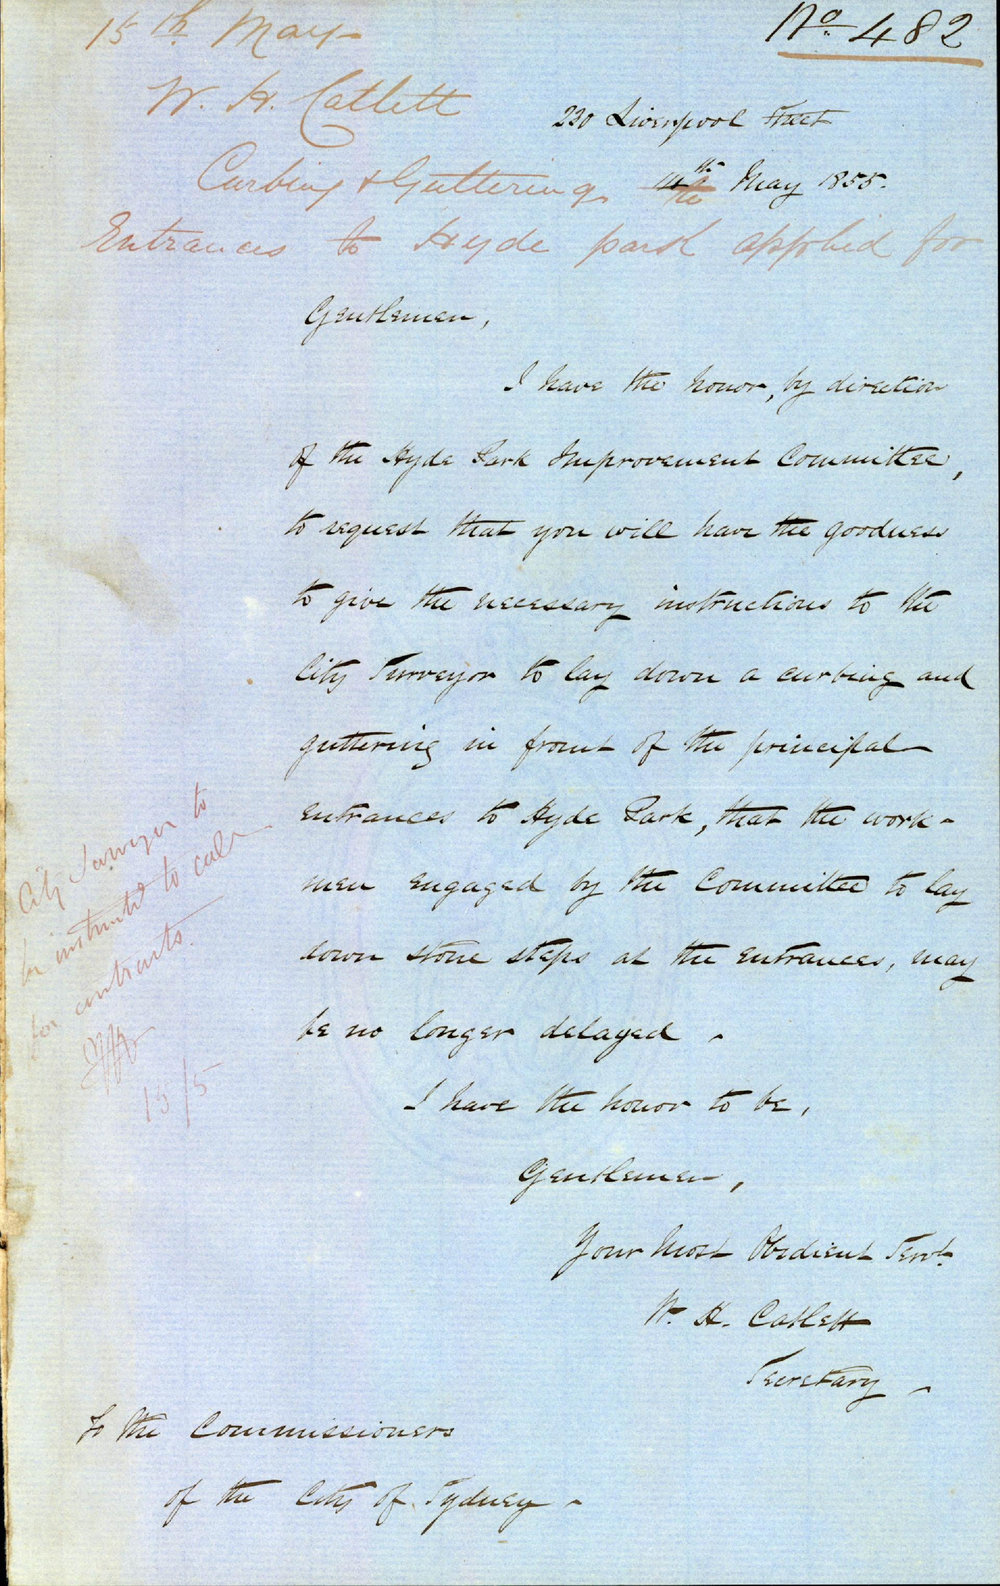 15th May
No. 482
W. H. Catlett
230 Liverpool Street
Curbing & Guttering
14th May 1855.
Entrances to Hyde park applied for
Gentlemen,
I have the honor, by direction
of the Hyde Park Improvement Committee,
to request that you will have the goodness
to give the necessary instructions to the
City Surveyor to lay down a curbing and
guttering in front of the principal
entrances to Hyde Park, that the work-
men engaged by the Committee to lay
down stone steps at the entrances, may
be no longer delayed.
I have the honor to be,
Gentlemen,
Your Most Obedient Servt.
W. H. Catlett
Secretary
To the Commissioners
of the City of Sydney
City Surveyor to
be instructed to call
for contracts.
15/5